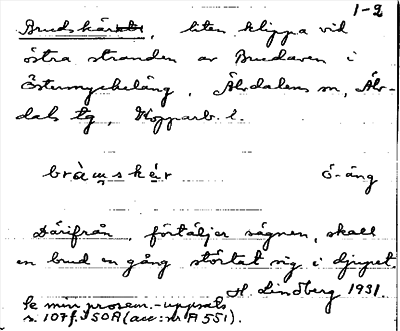 1-2
Brudskär, liten klippa vid
östra stranden av Brudaren i
Östermyckeläng, Älvdalens sn, Älv-
dals tg, Kopparb. l.
bràmskęr ö-äng
Därifrån, förtäljer sägnen, skall
en brud en gång störtat sig i djupet.
H. Lindberg 1931.
Se min prosem.-uppsats
s. 107 f. i SOA (acc: nr A 551).